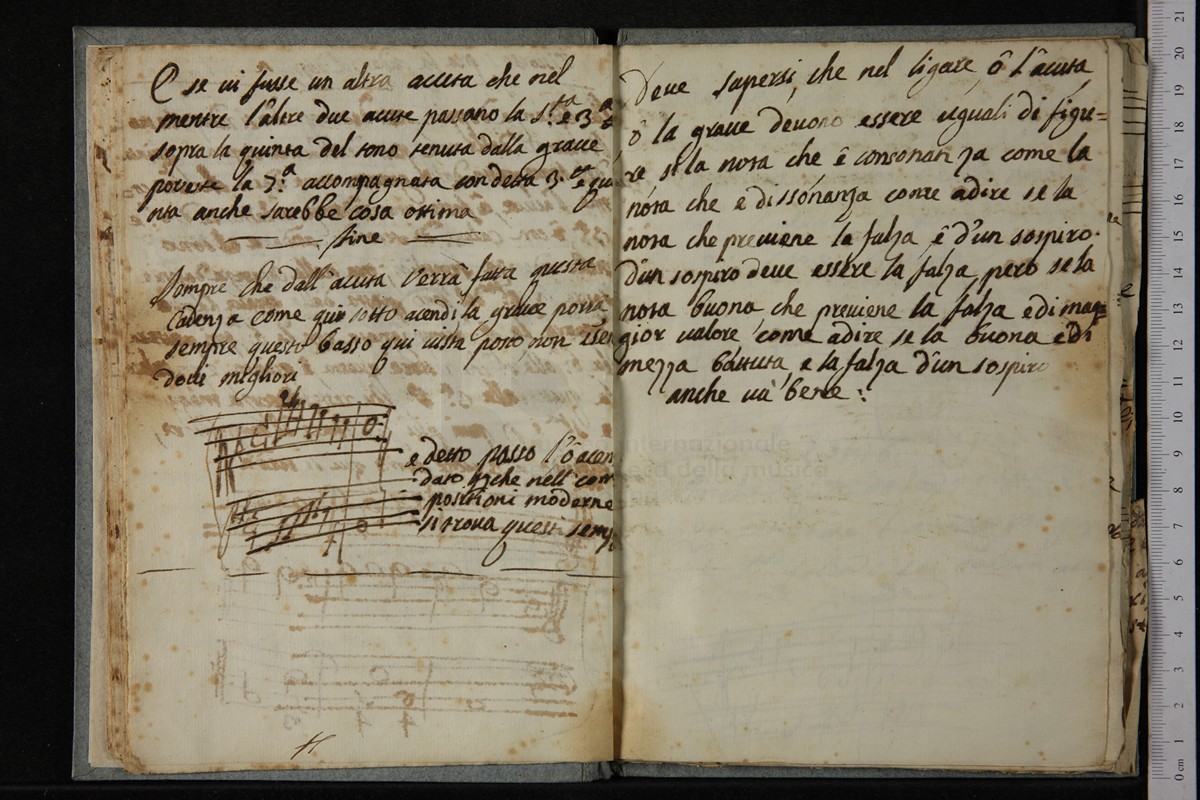 E se vi fusse un altra accuta che nel
mentre l'altre due accute passano la s.ta e 3.a
sopra la quinta del tono tenuta dalla grave
poneste la 7.a accompagnata con detta 3.a e qui
nta anche sarebbe cosa ottima
fine
Sempre che dall'accuta verrà fatta questa
Cadenza come qui sotto acendi la grave potrà
sempre questo basso qui vista però non
dovi migliori
e detto passo l'ô
dato che nell com
positioni moderne
si trova questi semp
Deve sapersi, che nel ligare, ô l'acuta
ô la grave devono essere uguali di figu=
re se la nota che ê consonanza come la
nota che e dissonanza come adire se la
nota che previene la falza ê d'un sospiro.
d'un sospiro deve essere la falza però se la
nota buona che previene la falza e di mag=
gior valore come adire se la buona e di
mezza battuta e la falza d'un sospiro
anche và bene :
internazionale
della musica